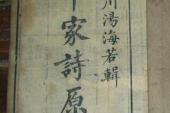 川湯海若輯
千家詩原